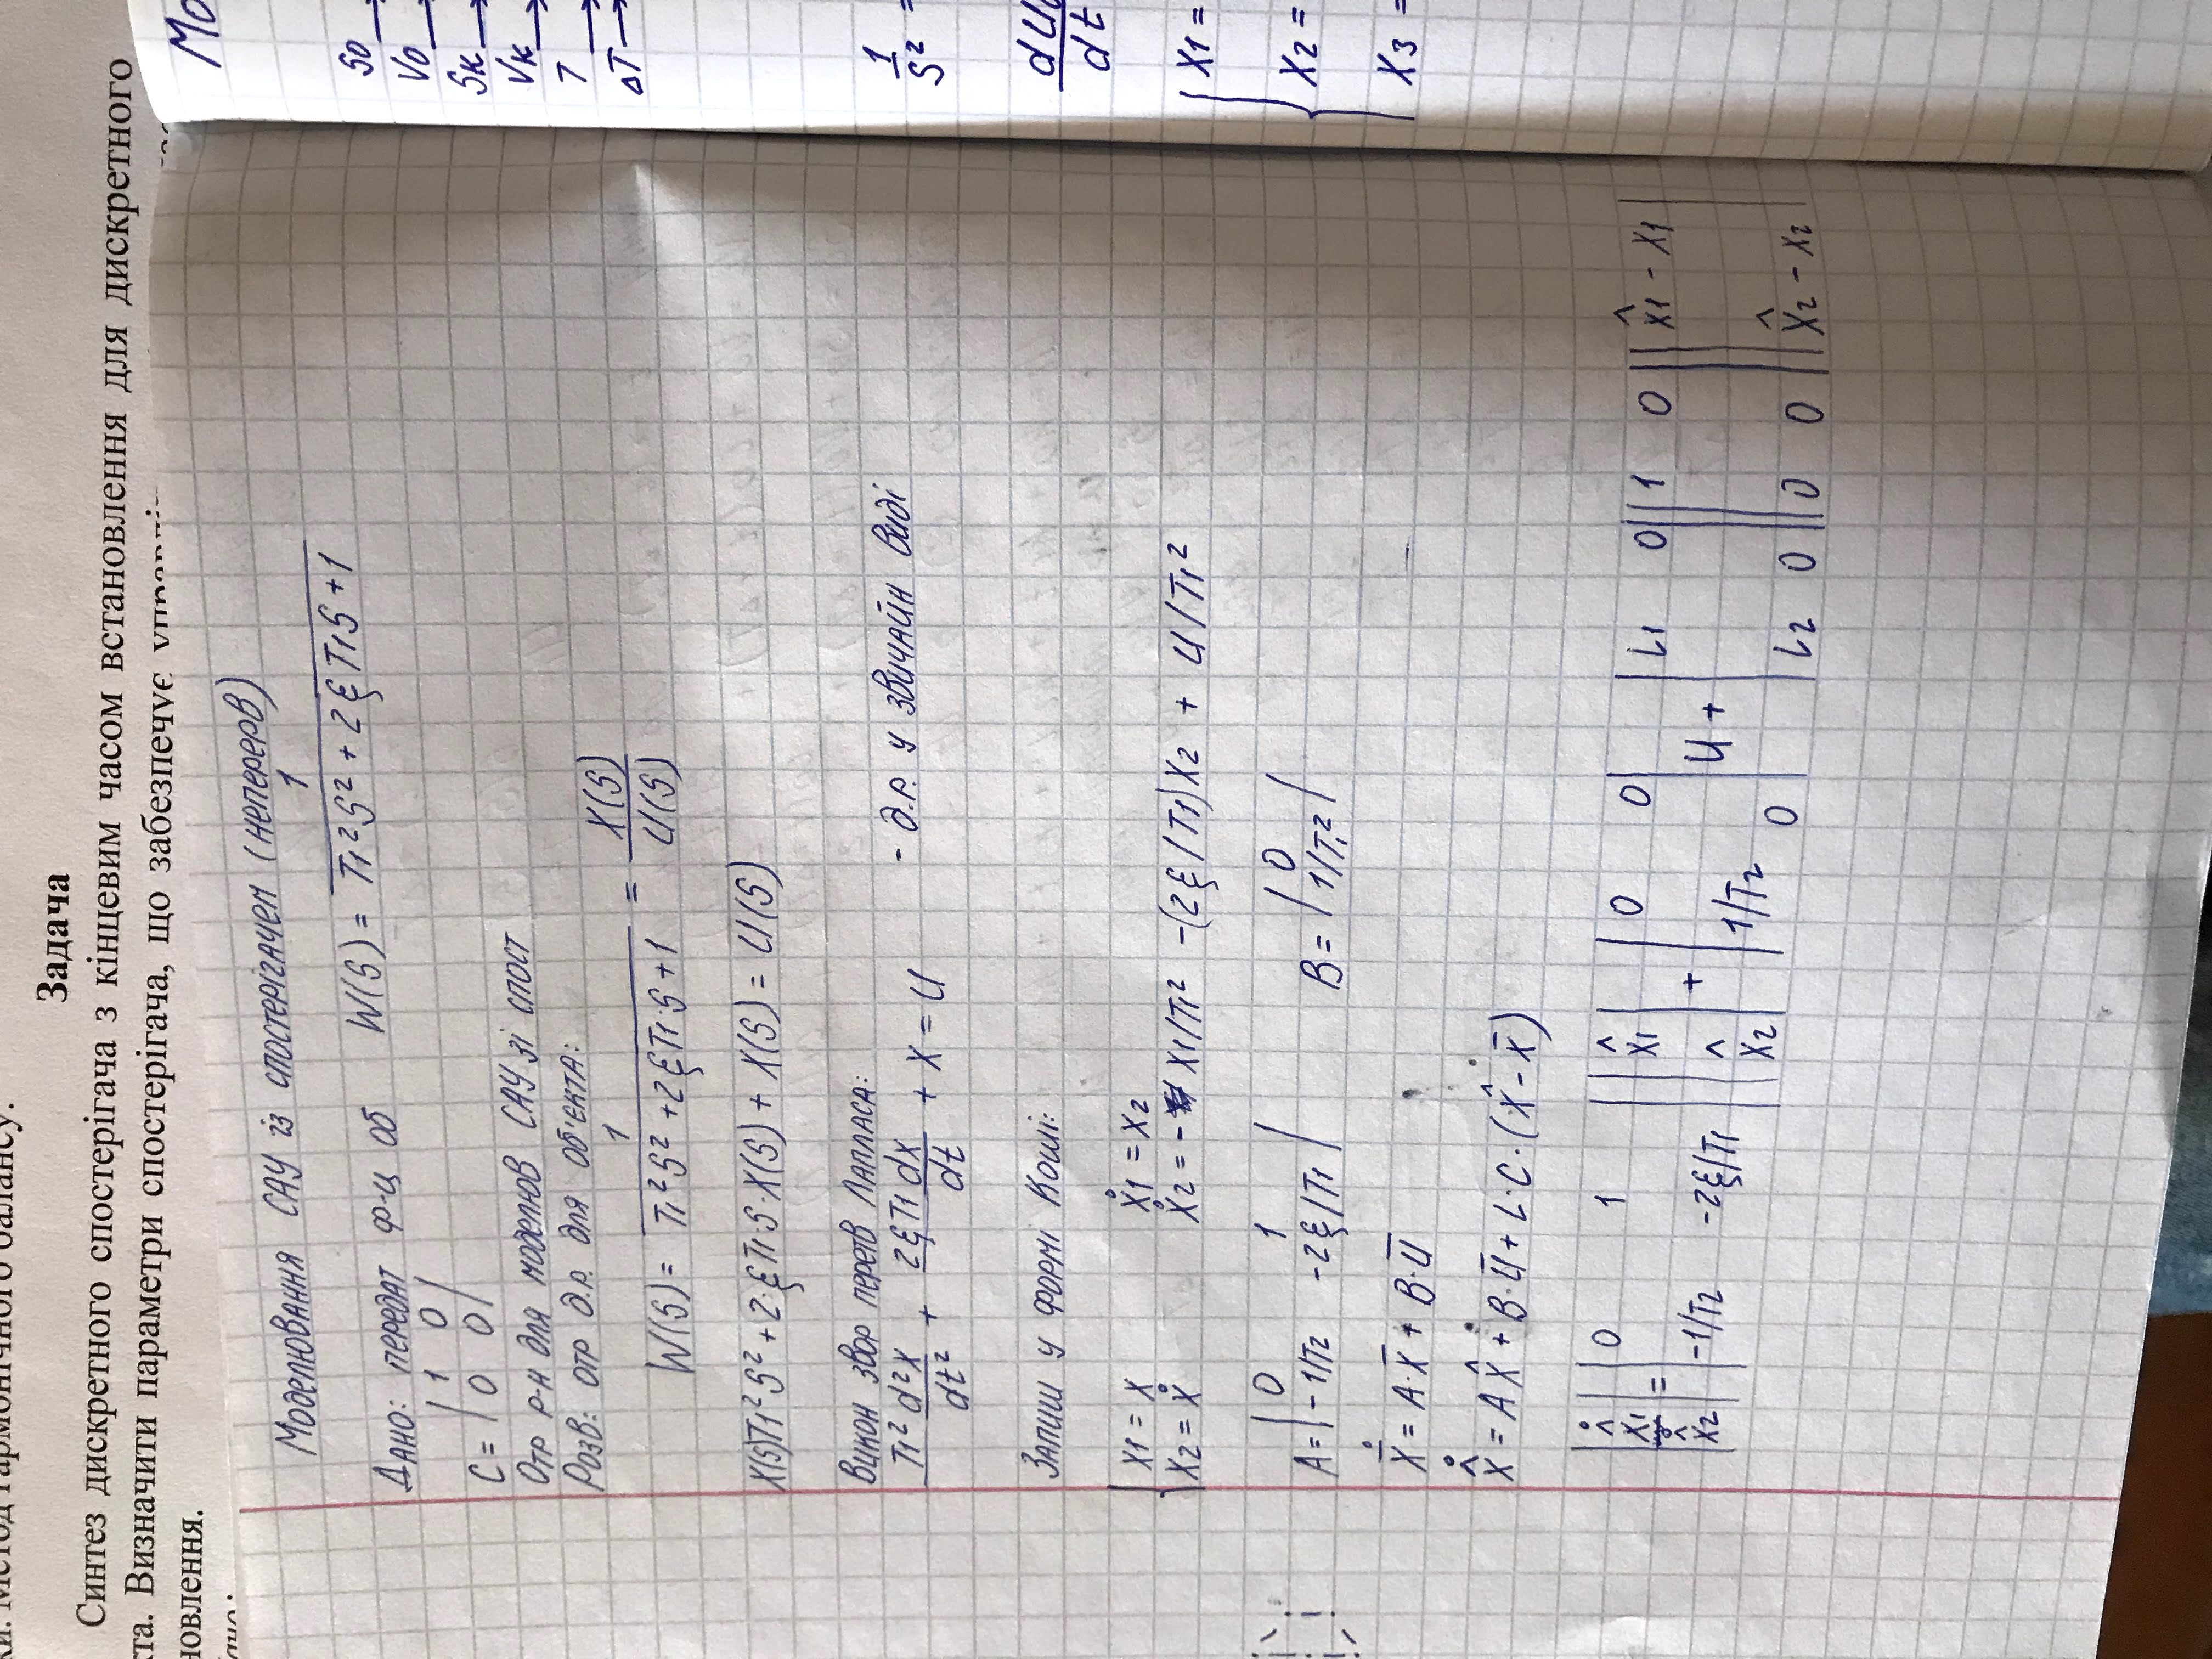 ки. Метод гармонічного балансу.
Задача
Синтез дискретного спостерігача з кінцевим часом встановлення для дискретного
кта. Визначити параметри спостерігача, що забезпечує
новлення.
Моделювання САУ із спостерігачем (неперерв)
Дано: передат ф-ц об W(S) = 1 / (T1²S² + 2ξT1S + 1)
C = | 1 0 |
| 0 0 |
Отр р-н для моделюв САУ зі спост
Розв: отр д.р. для об'єкта:
W(S) = 1 / (T1²S² + 2ξT1·S + 1) = X(S) / U(S)
X(S)T1²S² + 2·ξT1·S·X(S) + X(S) = U(S)
Викон звор перетв Лапласа:
T1² d²x / dt² + 2ξT1 dx / dt + X = U - д.р. у звичайн виді
Запиш у формі Коші:
X1 = X Ẋ1 = X2
X2 = Ẋ Ẋ2 = - X1/T1² -(2ξ/T1)X2 + U/T1²
A = | 0 1 | B = | 0 |
| -1/T2 -2ξ/T1 | | 1/T1² |
Ẋ̄ = A·X̄ + B·Ū
X̂̇ = AX̂ + B·Ū + L·C·(X̂ - X̄)
| X̂̇1 | = | 0 1 | | X̂1 | + | 0 0 | U + | L1 0 | | 1 0 | | X̂1 - X1 |
| X̂̇2 | | -1/T2 -2ξ/T1 | | X̂2 | | 1/T2 0 | | L2 0 | | 0 0 | | X̂2 - X2 |
S0
V0
Sк
Vк
T
ΔT
1/S² =
dt
X1 =
X2 =
X3 =